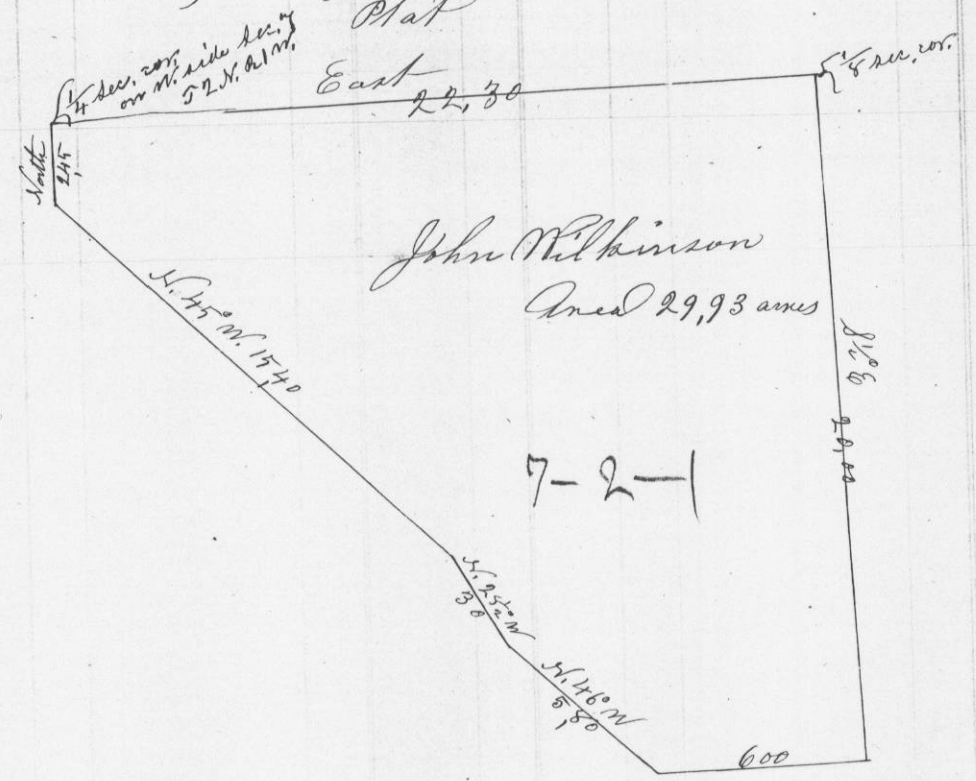 Plat
1/4 Sec. cor.
on N. side Sec. 7
T 2 N. R 1 W.
East
22,30
1/8 sec. cor.
North
2,45
John Wilkinson
Area 29,93 acres
N. 45° W. 15,40
20,00
7-2-1
N. 25 1/2° W
30
N. 46° W
5,80
600